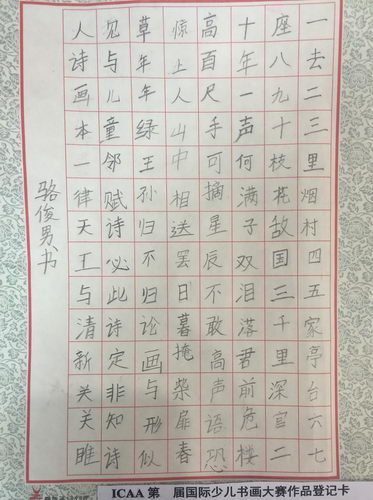 一去二三里烟村四五家亭台六七
座八九十枝花敌国三千里深官二
十年一声何满子双泪落君前危楼
高百尺手可摘星辰不敢高声语恐
惊上人山中相送罢日暮掩柴扉春
草年年绿王孙归不归论画与形似
见与儿童邻赋诗必此诗定非知诗
人诗画本一律天工与清新关关雎
骆俊男书
ICAA 第 届国际少儿书画大赛作品登记卡